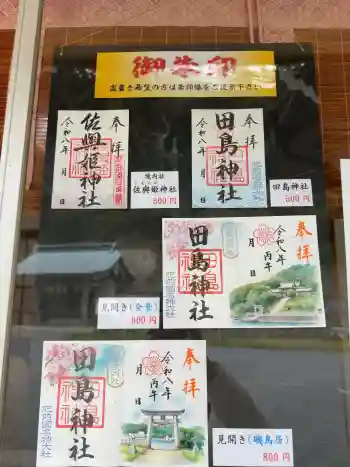 御朱印
直書き希望の方は朱印帳をご提示下さい
奉拝
佐與姫神社
令和八年 月 日
境内社
佐與姫神社
500円
奉拝
田島神社
令和八年 月 日
田島神社
500円
奉拝
令和八年
丙午
月 日
田島神社
肥前國名神大社
見開き(全景)
800円
奉拝
令和八年
丙午
月 日
田島神社
肥前國名神大社
見開き(磯鳥居)
800円